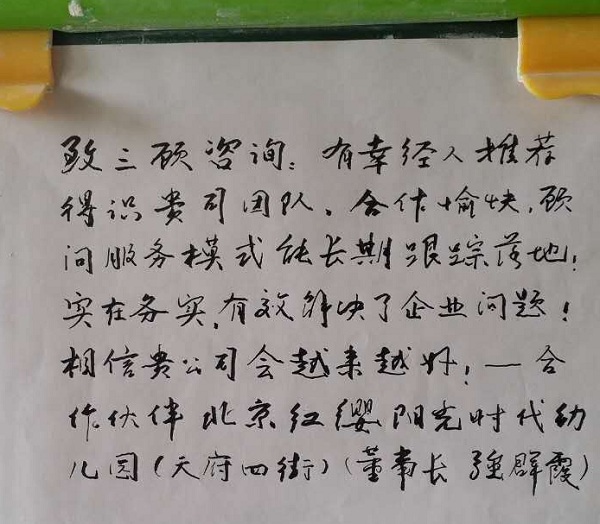 致三顾咨询：有幸经人推荐
得识贵司团队，合作愉快，顾
问服务模式能长期跟踪落地！
实在务实，有效解决了企业问题！
相信贵公司会越来越好！—合
作伙伴北京红缨阳光时代幼
儿园（天府四街）（董事长 强群霞）